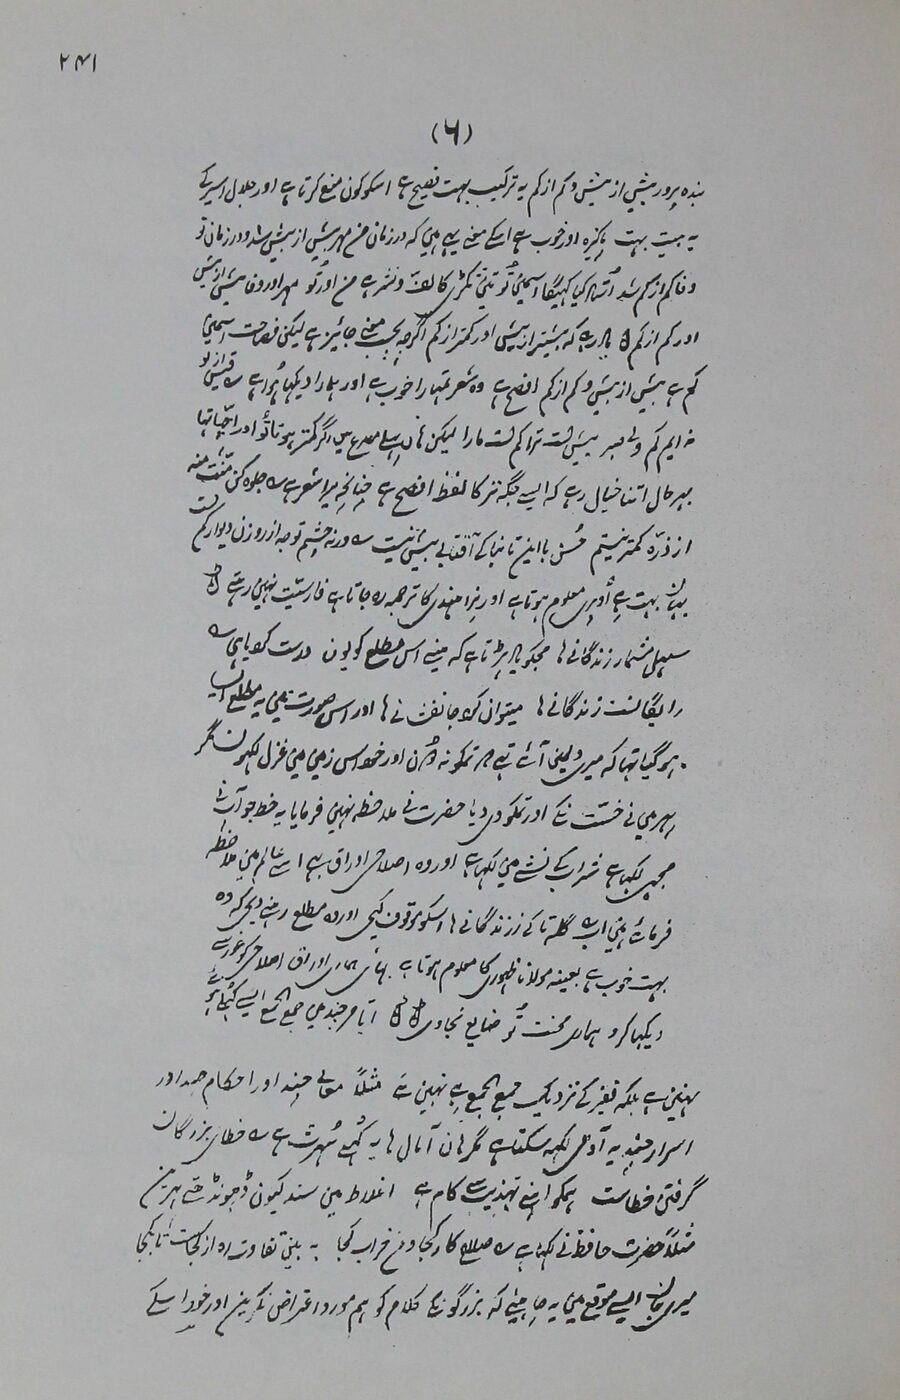 ۲۴۱
(۶)
بندہ پرور بیش از بیش و کم از کم یہ ترکیب بہت فصیح ہے اسکو کون منع کرتا ہے اور جلال اسیر کے
یہ بیت بہت پاکیزہ اور خوب ہے اسکے معنے یہی ہیں کہ در زمان من مہر بیش از بیش شد و در زمان تو
وفا کم از کم شد اُستاد کیا کہیگا اسمیں تو تین تین ٹکڑی کا لف و نشر ہے من اور تو مہر اور وفا بیش از بیش
اور کم از کم یاد رہے کہ بیشتر از بیش اور کمتر از کم اگرچہ بحسب معنے جائز ہے لیکن فصاحت اسمیں
کم ہے بیش از بیش و کم از کم افصح ہے وہ شعر تمہارا خوب ہے اور ہمارا دیکھا ہوا ہے
نہ ایم کم ولی صبر بیش است ترا کم است مارا لیکن ہاں پہلے مصرع میں اگر کمتر ہوتا تو اور اچھا تہا
بہر حال اتنا خیال رہے کہ ایسے جگہ تر کا لفظ افصح ہے چنانچہ میرا شعر ہے جلوہ کن منّت منہ
از ذرّہ کمتر نیستم حُسن با این تابناکے آفتابے بیش نیست ورنہ چشم تو چہ از روزن دیوار کم است
یہان بہت ہی اوپری معلوم ہوتا ہے اور نرا ہندی کا ترجمہ رہ جاتا ہے فارسیت نہین رہتے
سہل مشمار زندگانے ہا مجکو یاد پڑتا ہے کہ مینے اس مطلع کو یون درست کردیا ہی
رایگانست زندگانے ہا میتوان کرد جانفشانے ہا اور اس صورت مین یہ مطلع ایسا
ہو گیا تہا کہ میری دلمین آئے تہے کہ تمکو نہ دون اور خود اس زمین مین غزل لکہون مگر
پہر مینے خسّت نکے اور تمکو دی دیا حضرت نے ملاحظہ نہین فرمایا یہ خط جو آپ نے
مجہے لکہا ہے شراب کے نشے مین لکہا ہے اور وہ اصلاحی اوراق بہے اسے عالم مین ملاحظہ
فرمائے ہین اب گلہ تا کے ز زندگانے ہا اسکو موقوف کیجے اور وہ مطلع رہنے دیجے کہ وہ
بہت خوب ہے بعینہ مولانا ظہوری کا معلوم ہوتا ہے بہائی ہماری اوراق اصلاحی کو غور سے
دیکہا کرو ہماری محنت تو ضایع نجاوی ایّام چند مین جمع الجمع ایسے کُہلے ہوئے
نہین ہے بلکہ فقیر کے نزدیک جمع الجمع ہی نہین ہے مثلاً معانے چند اور احکام چند اور
اسرار چند یہ آدمی لکہہ سکتا ہے مگر ہان آمال ہا یہ کُہلے شُہرت ہے خطای بزرگان
گرفتن خطاست ہمکو اپنے تہذیب سے کام ہے اغلاط مین سند کیون ڈہونڈہتے پہرین
مثلاً حضرت حافظ نے لکہا ہے صلاح کار کجا و من خراب کجا بہ بین تفاوت رہ از کجاست تا بکجا
میری جان ایسے موقع مین یہ چاہئے کہ بزرگو نکے کلام کو ہم مورد اعتراض نکرین اور خود اسکے